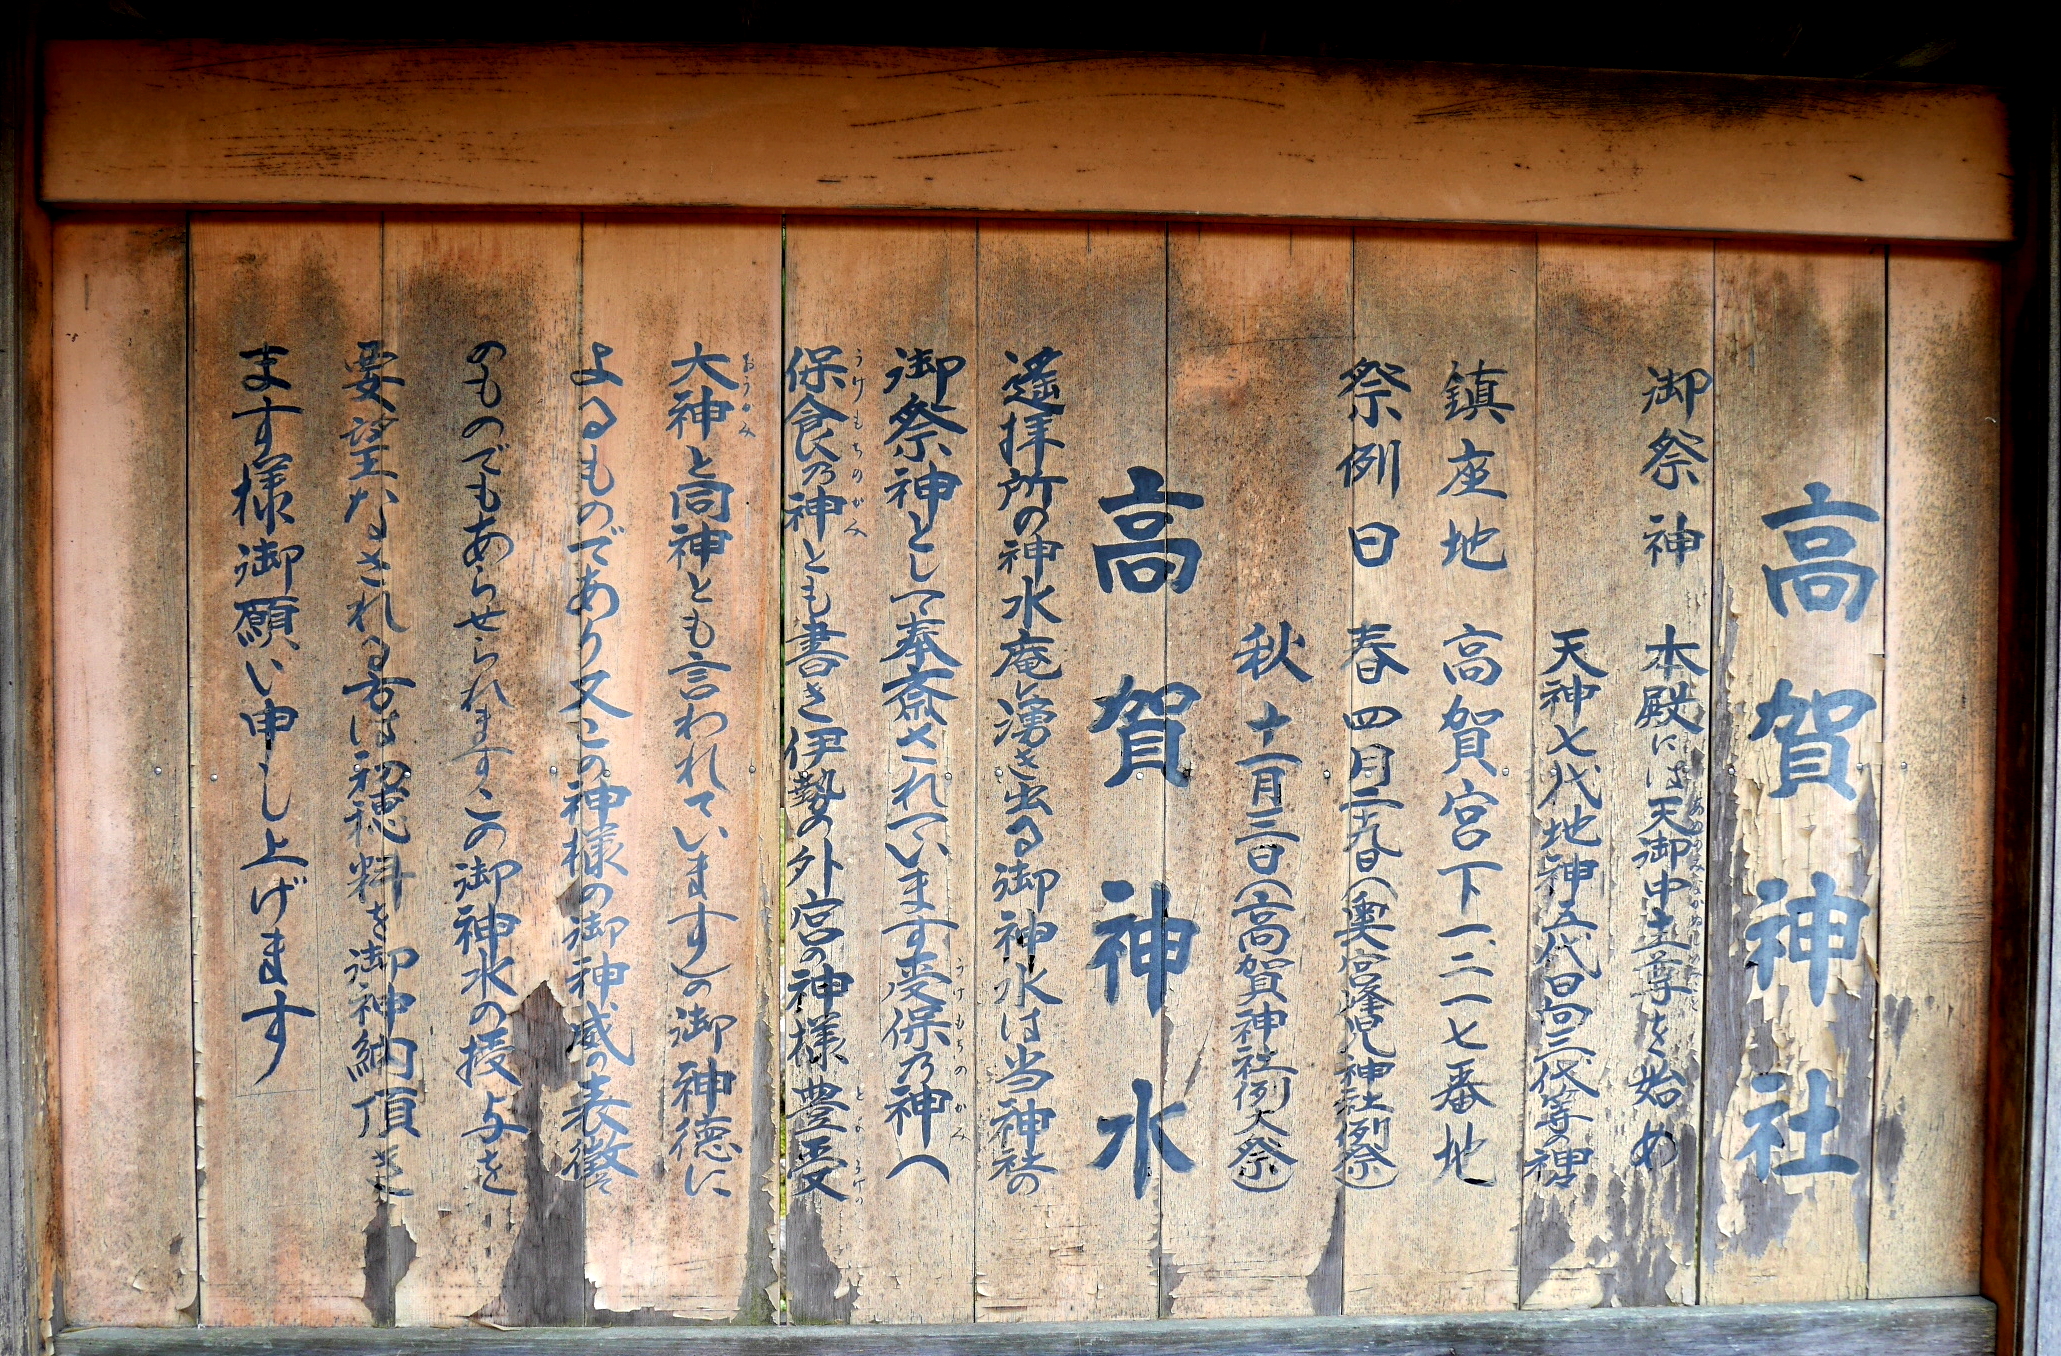 高賀神社
御祭神 本殿には天御中主尊を始め
天神七代地神五代日向三代等の神
鎮座地 高賀宮下一、二一七番地
祭例日 春 四月二十九日(奥宮峯児神社例祭)
秋 十一月三日(高賀神社例大祭)
高賀神水
遙拝所の神水庵に湧き出る御神水は当神社の
御祭神として奉斎されています受保乃神(うけもちのかみ)へ
保食乃神(うけもちのがみ)とも書き伊勢の外宮の神様豊受(とようけの)
大神(おうかみ)と同神とも言われています)の御神徳に
よるものであり又この神様の御神威の表徴
のものでもあらせられますこの御神水の授与を
要望なされる方は初穂料を御神納頂き
ます様御願い申し上げます